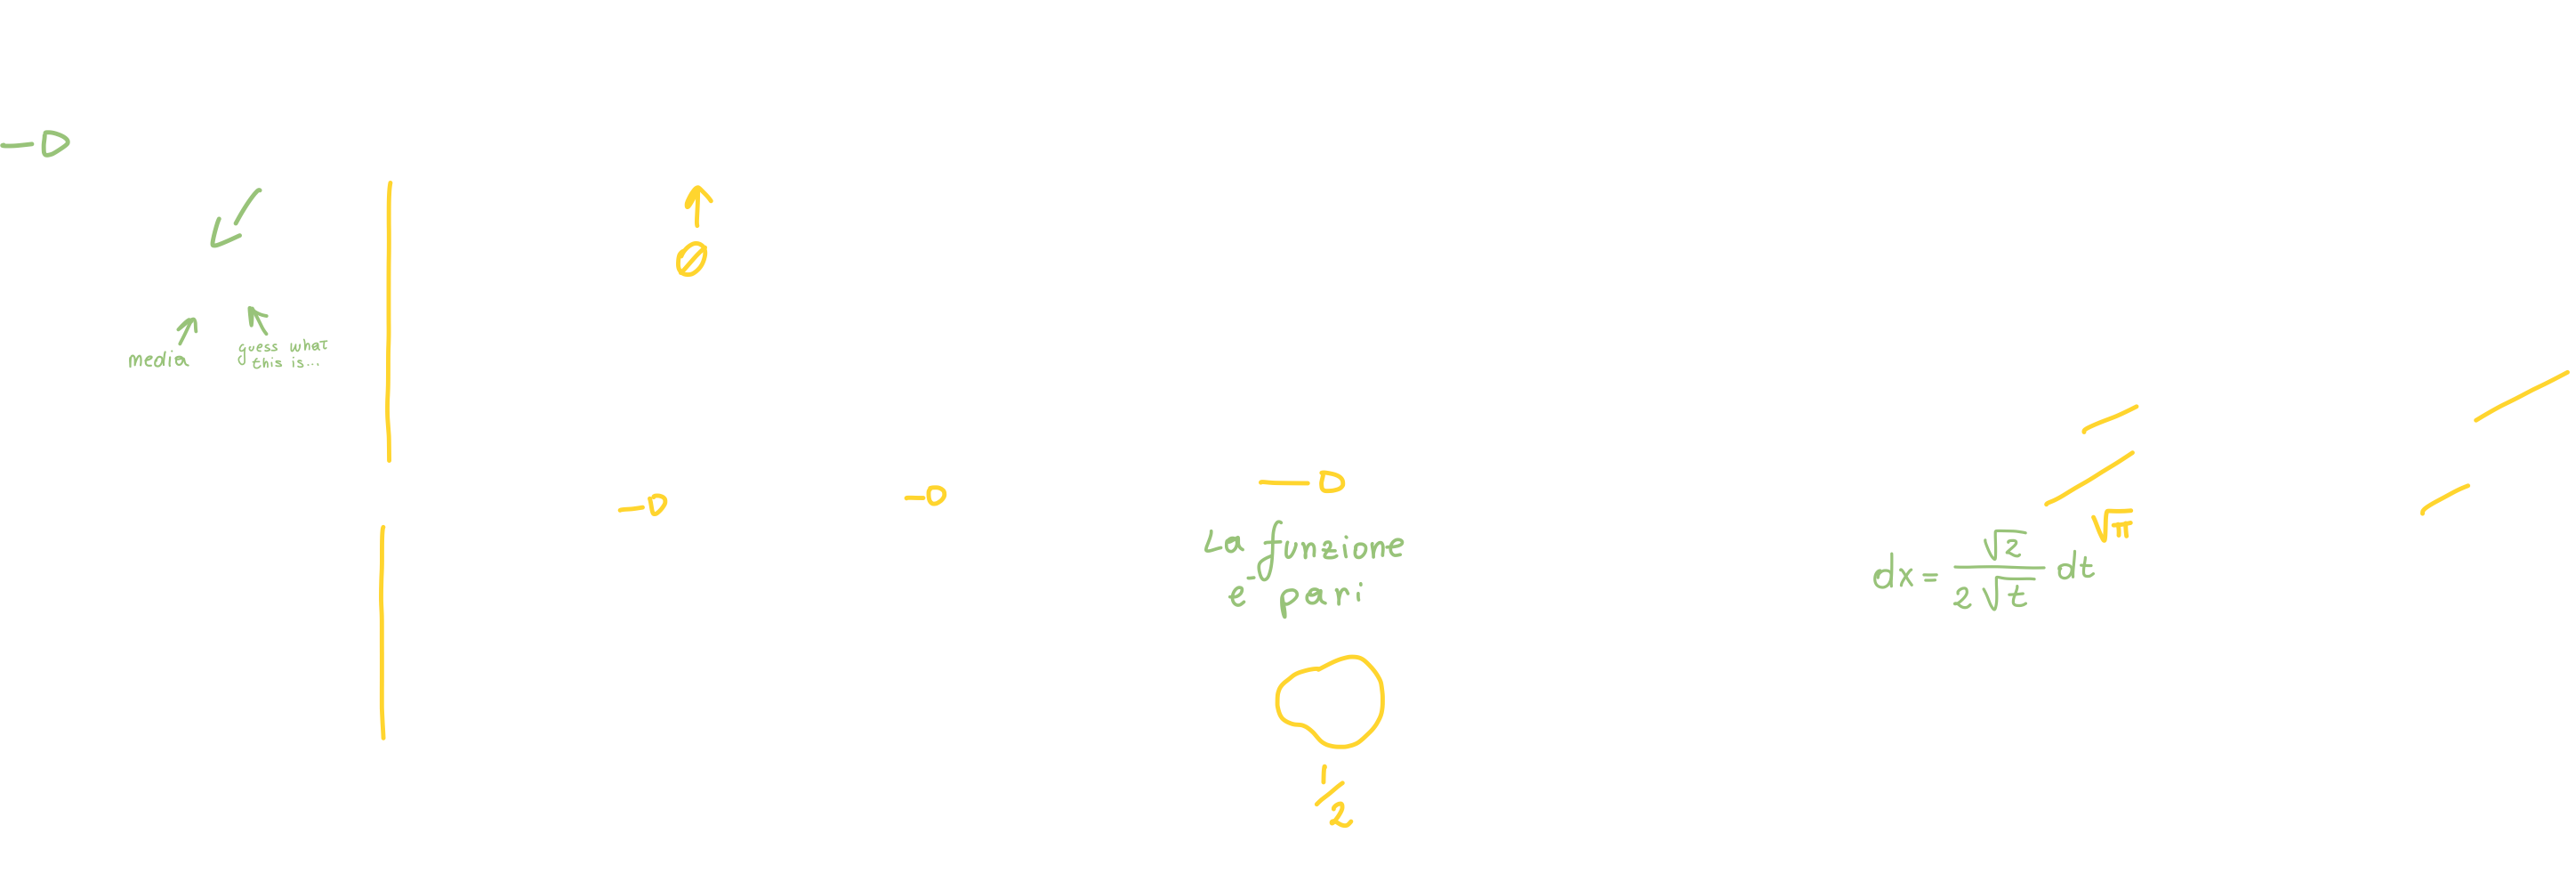 ∅
media
guess what
this is...
La funzione
e- pari
√π
dx = √2 / 2√t dt
1/2